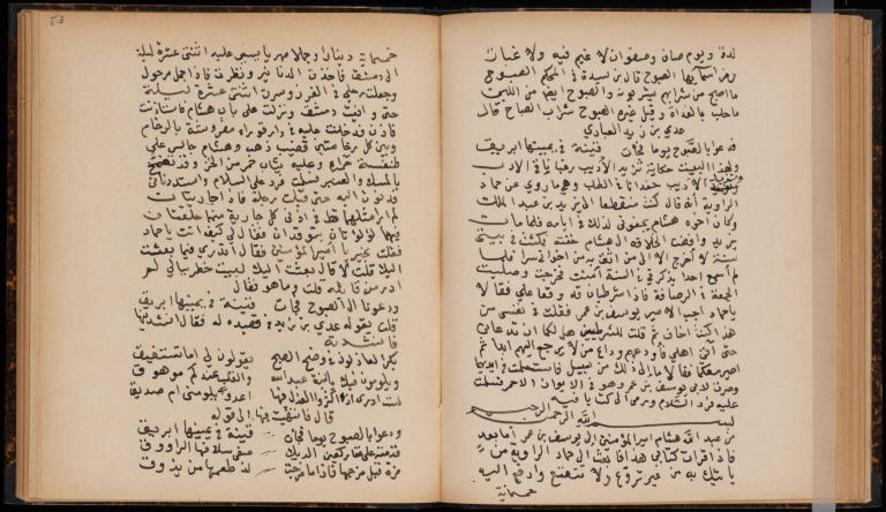 لذة ويوم صاف وصفوان لا غيم فيه ولا غبار
ومن اسمائها الصبوح قال بن سيدة في المحكم الصبوح
ما اصبح من شرابهم يشربونه والصبوح ايضا من اللبن
ما حلب بالغداة وقيل غيره الصبوح شراب الصباح قال
عدي بن زيد العبادي
فدعوا بالصبوح يوما فجاءت قينة في يمينها ابريق
ولهذا البيت حكاية تزيد الأديب رغبا في الادب
الأديب في الطلب وهو ما روي عن حماد
الراوية أنه قال كنت منقطعا الى يزيد بن عبد الملك
وكان اخوه هشام يجفوني لذلك في ايامه فلما مات
يزيد وافضت الخلافه الى هشام خفته فمكثت في بيتي
سنة لا اخرج الا الى من اثق به من اخواني سرا فلما
لم اسمع احدا يذكرني في السنة امنت فخرجت وصليت
الجمعة في الرصافة فاذا شرطيان قد وقفا علي فقالا
يا حماد اجب الامير يوسف بن عمر فقلت في نفسي من
هذا كنت اخاف ثم قلت للشرطيين هل لكما ان تدعاني
حتى آتي اهلي فاودعهم وداع من لا يرجع اليهم ابدا ثم
اصير معكما فقالا ما الى ذلك من سبيل فاستسلمت في ايديهما
وصرت الى يوسف بن عمر وهو في الايوان الاحمر فسلمت
عليه فرد السلام ورمى الي كتابا فيه
بسم الله الرحمن الرحيم
من عبد الله هشام امير المؤمنين الى يوسف بن عمر أما بعد
فاذا قرات كتابي هذا فابعث الى حماد الراوية من
يأتيك به من غير تروع ولا تتعتع وادفع اليه
خمسمائة
53
خمسمائة دينارا وجملا مهريا يسير عليه اثنتي عشرة ليلة
الى دمشق فاخذت الدنانير ونظرت فاذا جمل مرحول
وجعلت رجلي في الغرز وسرت اثنتي عشرة ليلة
حتى وافيت دمشق ونزلت على باب هشام فاستأذنت
فاذن فدخلت عليه في دار قوراء مفروشة بالرخام
وبين كل رخامتين قضيب ذهب وهشام جالس على
طنفسة حمراء وعليه ثياب حمر من الخز وقد تضمخ
بالمسك والعنبر فسلمت فرد علي السلام واستدناني
فدنوت اليه حتى قبلت رجله فاذا جاريتان
لم ار مثلهما قط في اذني كل جارية منهما حلقتان
فيهما لؤلؤتان يتوقدان فقال لي كيف انت يا حماد
فقلت بخير يا امير المؤمنين فقال أتدري فيما بعثت
اليك قلت لا قال بعثت اليك لبيت خطر ببالي لم
ادر من قائله قلت وما هو فقال
ودعوا الى الصبوح فجاءت قينة في يمينها ابريق
قلت يقوله عدي بن زيد في قصيده له فقال انشدنيها
فانشدته
بكر العاذلون في وضح الصبح يقولون لي اما تستفيق
ويلومون فيك يا ابنة عبد الله والقلب عندكم موهوق
لست ادري اذا اكثروا العذل فيها اعدو يلومني ام صديق
قال فانتهيت فيها الى قوله
ودعوا بالصبوح يوما فجاءت قينة في يمينها ابريق
قدمته على عقار كعين الديك صفى سلافها الراووق
مزة قبل مزجها فاذا ما مزجت لذ طعمها من يذوق